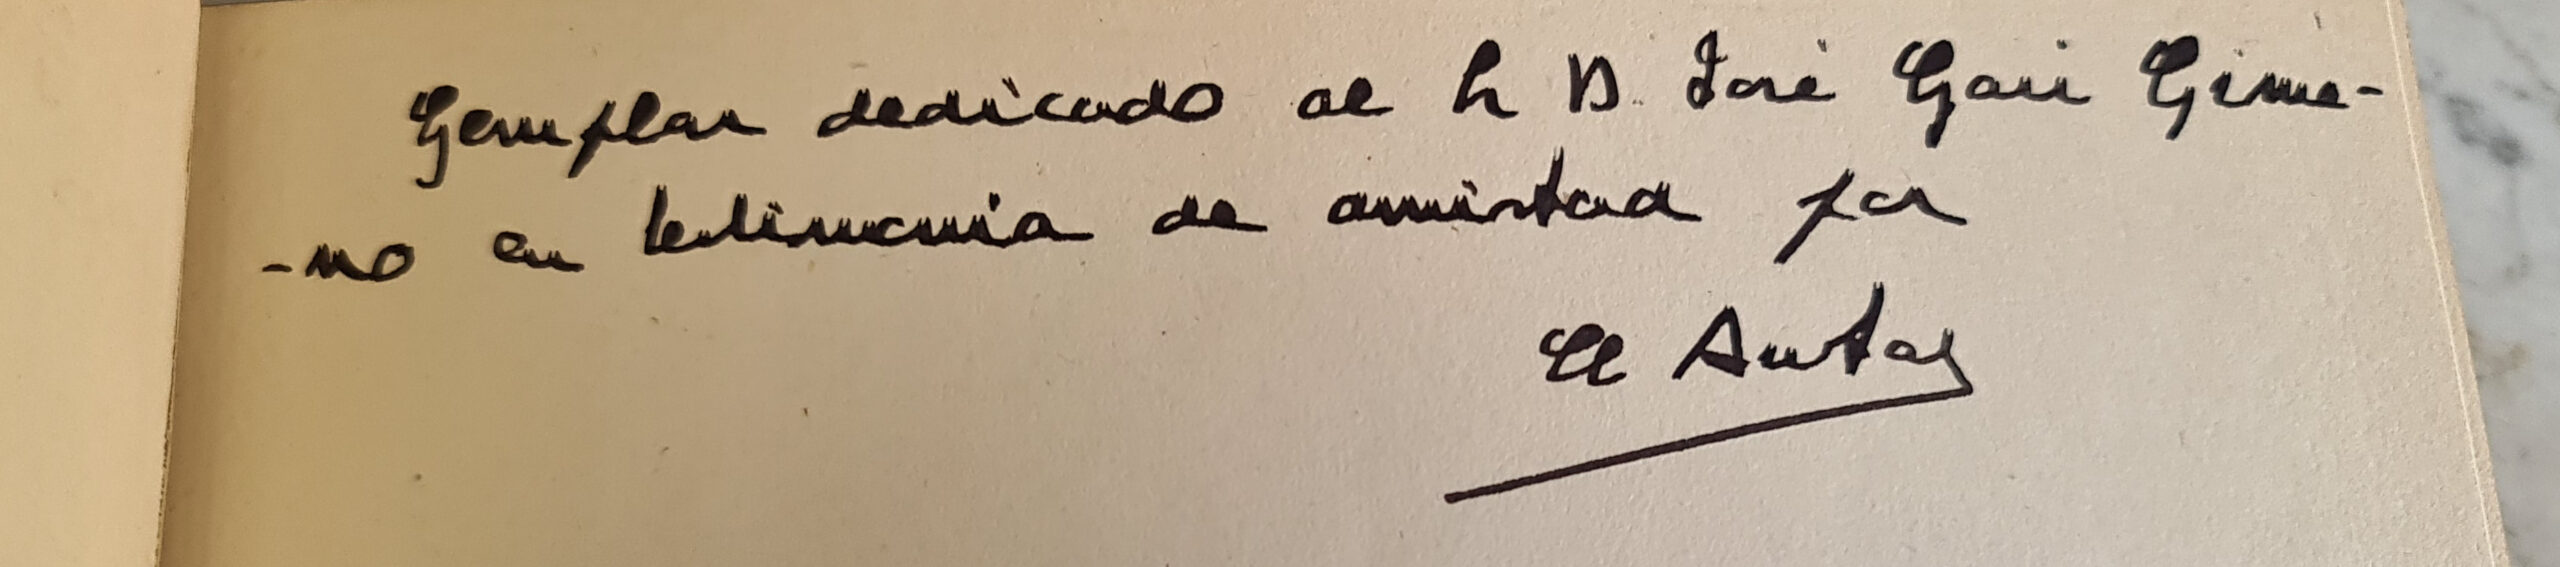 Ejemplar dedicado al Sr D. José Gari Gime-
-no en testimonio de amistad por
El Autor